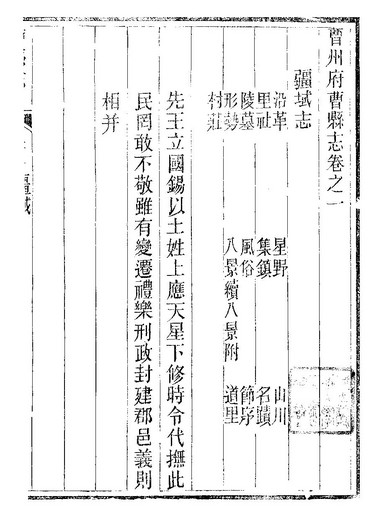 曹州府曹縣志卷之一
疆域志
沿革 星野 山川
里社 集鎮 名蹟
陵墓 風俗 節序
形勢 八景續八景附 道里
村莊
先王立國錫以土姓上應天星下修時令代撫此
民罔敢不敬雖有變遷禮樂刑政封建郡邑義則
相并